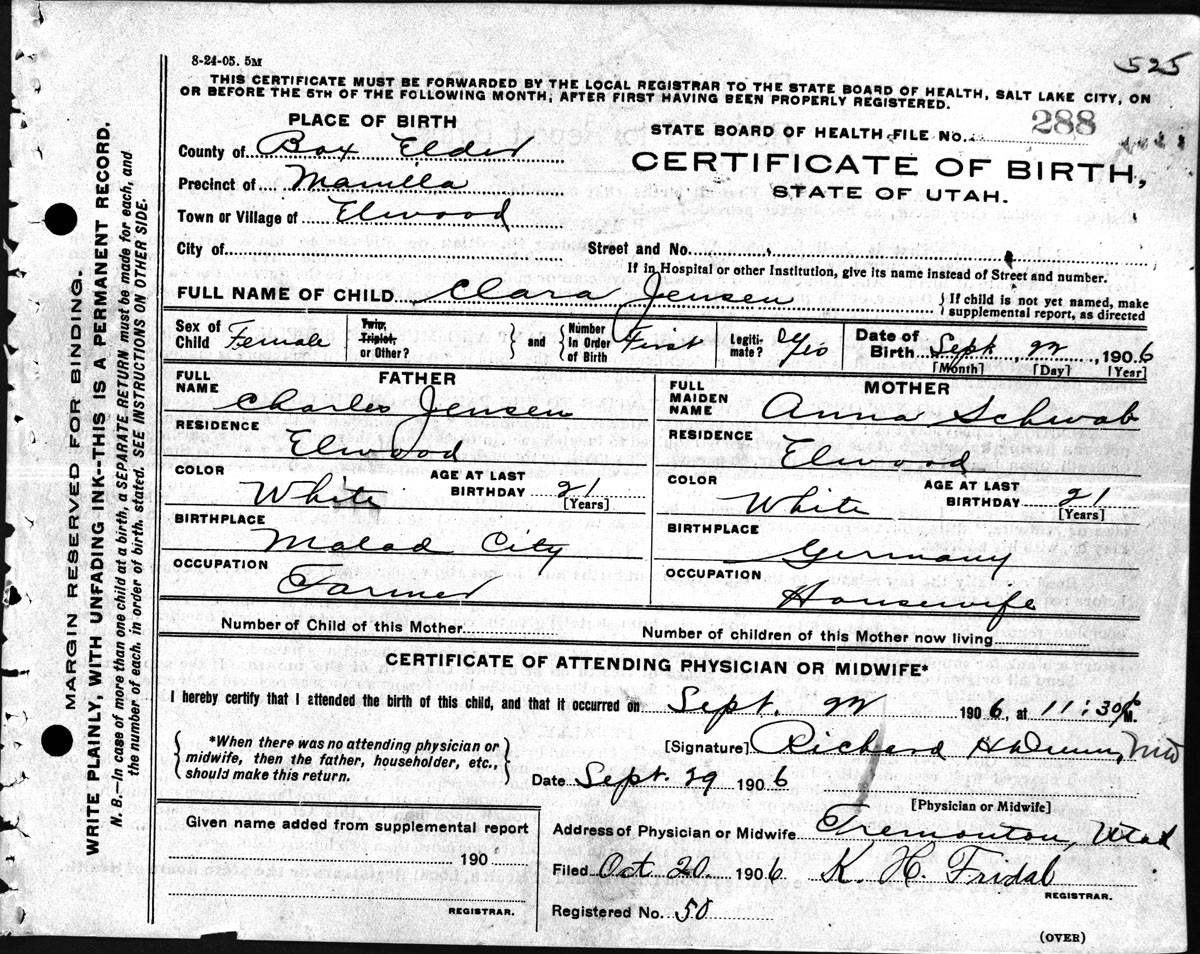 8-24-05. 5M
525
THIS CERTIFICATE MUST BE FORWARDED BY THE LOCAL REGISTRAR TO THE STATE BOARD OF HEALTH, SALT LAKE CITY, ON
OR BEFORE THE 5TH OF THE FOLLOWING MONTH, AFTER FIRST HAVING BEEN PROPERLY REGISTERED.
PLACE OF BIRTH
STATE BOARD OF HEALTH FILE No. 288
County of Box Elder
CERTIFICATE OF BIRTH,
Precinct of Manilla
STATE OF UTAH.
Town or Village of Elwood
City of
Street and No.
If in Hospital or other Institution, give its name instead of Street and number.
FULL NAME OF CHILD Clara Jensen
{ If child is not yet named, make
supplemental report, as directed
Sex of Child Female
Twin, Triplet, or Other?
} and { Number In Order of Birth First
Legiti-mate?
Date of Birth Sept 1906
[Month] [Day] [Year]
FATHER
FULL NAME Charles Jensen
RESIDENCE Elwood
COLOR White
AGE AT LAST BIRTHDAY 21
[Years]
BIRTHPLACE Malad City
OCCUPATION Farmer
MOTHER
FULL MAIDEN NAME Anna Schwab
RESIDENCE Elwood
COLOR White
AGE AT LAST BIRTHDAY 21
[Years]
BIRTHPLACE Germany
OCCUPATION Housewife
Number of Child of this Mother
Number of children of this Mother now living
CERTIFICATE OF ATTENDING PHYSICIAN OR MIDWIFE*
I hereby certify that I attended the birth of this child, and that it occurred on Sept. 1906, at 11:30 M.
{ *When there was no attending physician or
midwife, then the father, householder, etc.,
should make this return. }
[Signature] Richard MD
Date Sept. 29 1906
[Physician or Midwife]
Given name added from supplemental report
190
REGISTRAR.
Address of Physician or Midwife Tremonton, Utah
Filed Oct 20. 1906 K. H. Fridal
REGISTRAR.
Registered No. 50
(OVER)
MARGIN RESERVED FOR BINDING.
WRITE PLAINLY, WITH UNFADING INK--THIS IS A PERMANENT RECORD.
N. B.—In case of more than one child at a birth, a SEPARATE RETURN must be made for each, and
the number of each, in order of birth, stated. SEE INSTRUCTIONS ON OTHER SIDE.